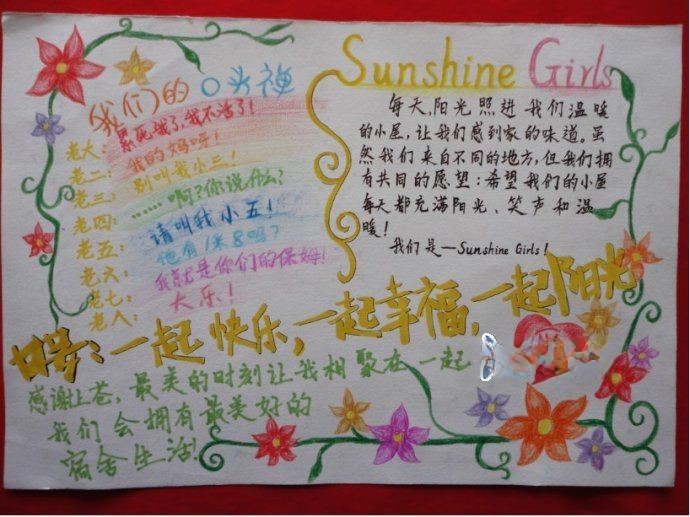 我们的口头禅
老大：累死哦了，我不活了！
老二：我的妈呀！
老三：别叫我小三！
老四：……啊？你说什么？
老五：请叫我小五！
老六：他有1米8吗？
老七：我就是你们的保姆！
老八：大乐！
Sunshine Girls
每天，阳光照进我们温暖
的小屋，让我们感到家的味道。虽
然我们来自不同的地方，但我们拥
有共同的愿望：希望我们的小屋
每天都充满阳光、笑声和温
暖！
我们是—Sunshine Girls！
口号：一起快乐，一起幸福，一起阳光
感谢上苍，最美的时刻让我相聚在一起
我们会拥有最美好的
宿舍生活！